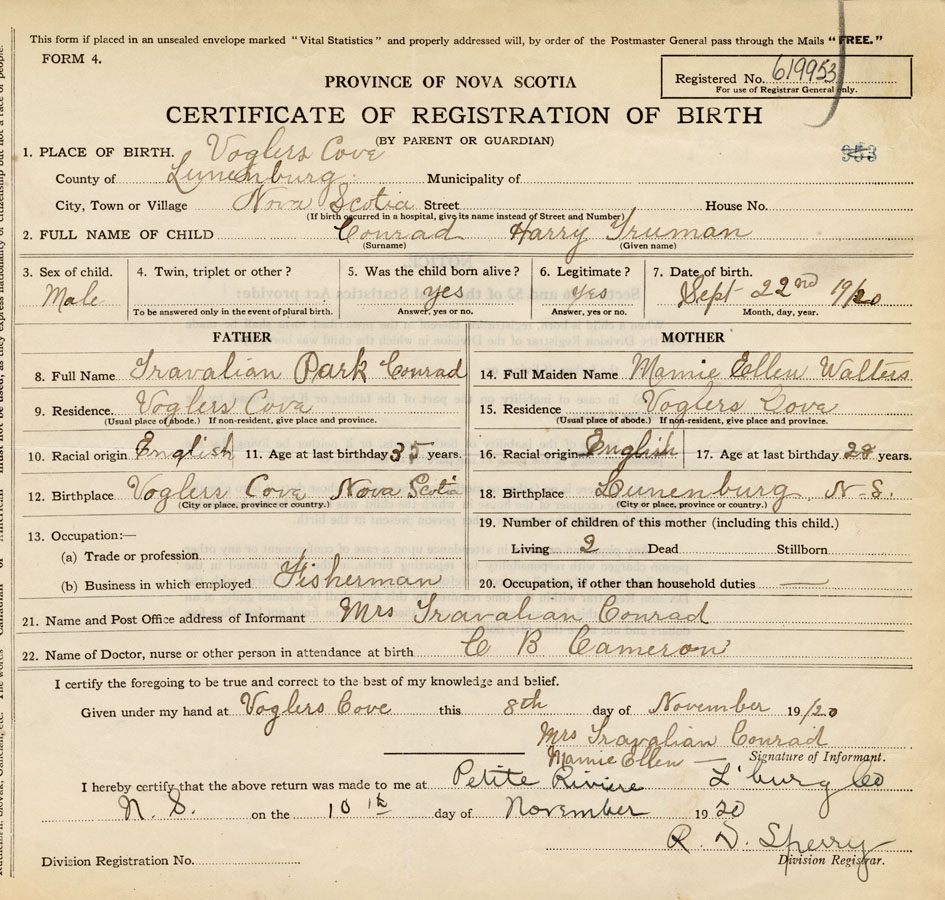 This form if placed in an unsealed envelope marked "Vital Statistics" and properly addressed will, by order of the Postmaster General pass through the Mails "FREE."
FORM 4.
Registered No. 619953
For use of Registrar General only.
PROVINCE OF NOVA SCOTIA
CERTIFICATE OF REGISTRATION OF BIRTH
(BY PARENT OR GUARDIAN)
353
1. PLACE OF BIRTH. Voglers Cove
County of Lunenburg. Municipality of
City, Town or Village Nova Scotia Street House No.
(If birth occurred in a hospital, give its name instead of Street and Number)
2. FULL NAME OF CHILD Conrad Harry Truman
(Surname) (Given name)
3. Sex of child. 4. Twin, triplet or other? 5. Was the child born alive? 6. Legitimate? 7. Date of birth.
Male yes yes Sept 22nd 19/20
To be answered only in the event of plural birth. Answer, yes or no. Answer, yes or no. Month, day, year.
FATHER
8. Full Name Travalian Park Conrad
9. Residence. Voglers Cove
(Usual place of abode.) If non-resident, give place and province.
10. Racial origin English 11. Age at last birthday 35 years.
12. Birthplace Voglers Cove Nova Scotia
(City or place, province or country.)
13. Occupation:—
(a) Trade or profession
(b) Business in which employed Fisherman
MOTHER
14. Full Maiden Name Mamie Ellen Walters
15. Residence Voglers Cove
(Usual place of abode.) If non-resident, give place and province.
16. Racial origin English 17. Age at last birthday 28 years.
18. Birthplace Lunenburg, N.S.
(City or place, province or country.)
19. Number of children of this mother (including this child.)
Living 2 Dead Stillborn
20. Occupation, if other than household duties —
21. Name and Post Office address of Informant Mrs Travalian Conrad
22. Name of Doctor, nurse or other person in attendance at birth C B Cameron
I certify the foregoing to be true and correct to the best of my knowledge and belief.
Given under my hand at Voglers Cove this 8th day of November 19/20
Mrs Travalian Conrad
Mamie Ellen — Signature of Informant.
I hereby certify that the above return was made to me at Petite Riviere L'burg Co
N. S. on the 10th day of November 1920
R. D. Sperry
Division Registration No. Division Registrar.